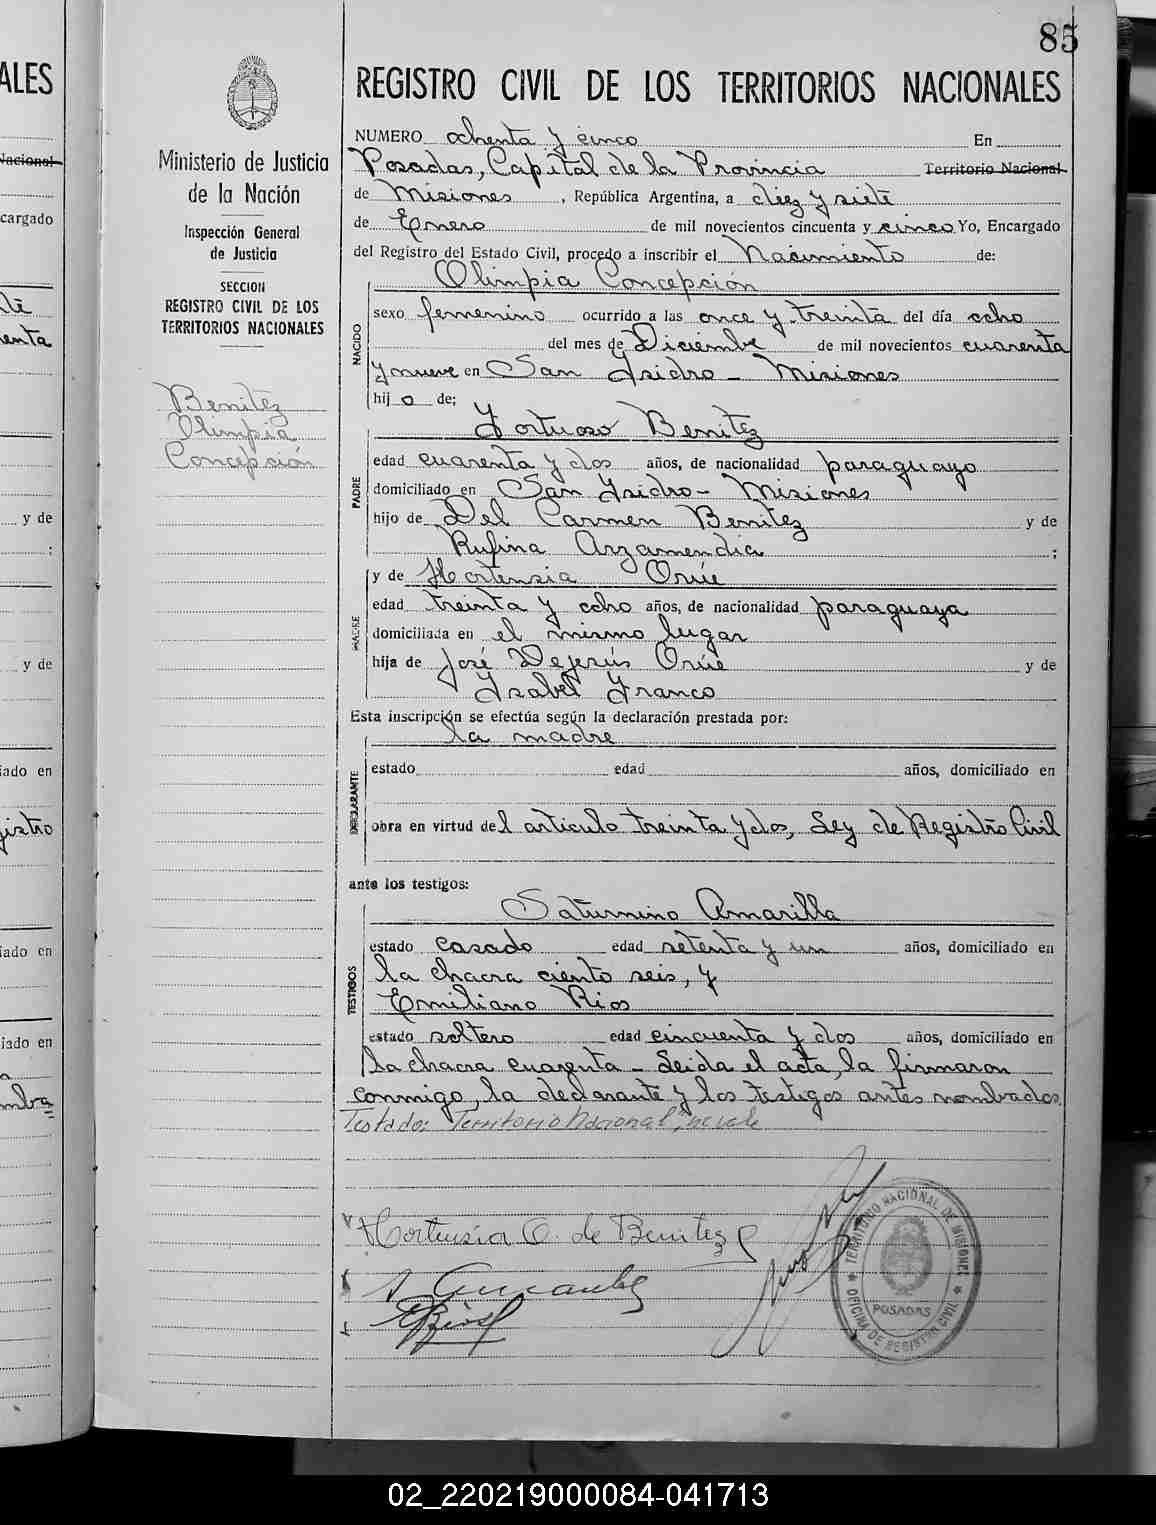 85
REGISTRO CIVIL DE LOS TERRITORIOS NACIONALES
Ministerio de Justicia
de la Nación
Inspección General
de Justicia
SECCION
REGISTRO CIVIL DE LOS
TERRITORIOS NACIONALES
Benitez
Olimpia
Concepción
NUMERO ochenta y cinco En
Posadas, Capital de la Provincia Territorio Nacional
de Misiones, República Argentina, a diez y siete
de Enero de mil novecientos cincuenta y cinco Yo, Encargado
del Registro del Estado Civil, procedo a inscribir el Nacimiento de:
Olimpia Concepción
NACIDO
sexo femenino ocurrido a las once y treinta del día ocho
del mes de Diciembre de mil novecientos cuarenta
y nueve en San Ysidro - Misiones
hij a de:
Fortuoso Benitez
PADRE
edad cuarenta y dos años, de nacionalidad paraguayo
domiciliado en San Ysidro - Misiones
hijo de Del Carmen Benitez y de
Rufina Arzamendia ;
y de Hortensia Orúe
MADRE
edad treinta y ocho años, de nacionalidad paraguaya
domiciliada en el mismo lugar
hija de José Dejesús Orúe y de
Ysabel Franco
Esta inscripción se efectúa según la declaración prestada por:
la madre
DECLARANTE
estado edad años, domiciliado en
obra en virtud del artículo treinta y dos, Ley de Registro Civil
ante los testigos:
Saturnino Amarilla
TESTIGOS
estado casado edad setenta y un años, domiciliado en
la chacra ciento seis, y
Emiliano Rios
estado soltero edad cincuenta y dos años, domiciliado en
la chacra cuarenta - Leida el acta, la firmaron
conmigo, la declarante y los testigos antes nombrados.
Testado: "Territorio Nacional", no vale
Hortensia O. de Benitez
TERRITORIO NACIONAL DE MISIONES
POSADAS
OFICINA DE REGISTRO CIVIL
ALES
Nacional
cargado
enta
y de
;
y de
iado en
gistro
iado en
iado en
mba
02_220219000084-041713